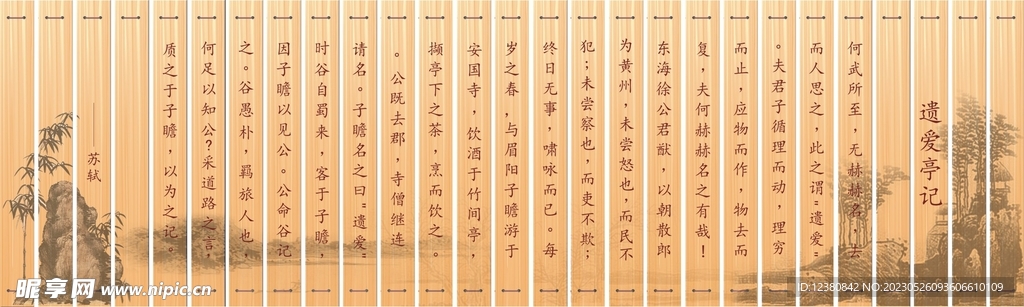 遗爱亭记
何武所至，无赫赫名，去
而人思之，此之谓“遗爱”
。夫君子循理而动，理穷
而止，应物而作，物去而
复，夫何赫赫名之有哉！
东海徐公君猷，以朝散郎
为黄州，未尝怒也，而民不
犯；未尝察也，而吏不欺；
终日无事，啸咏而已。每
岁之春，与眉阳子瞻游于
安国寺，饮酒于竹间亭，
撷亭下之茶，烹而饮之
。公既去郡，寺僧继连
请名。子瞻名之曰“遗爱”
时谷自蜀来，客于子瞻，
因子瞻以见公。公命谷记
之。谷愚朴，羁旅人也
何足以知公？采道路之言，
质之于子瞻，以为之记。
苏轼
昵享网 www.nipic.cn
ID:12380842 NO:20230526093606610109